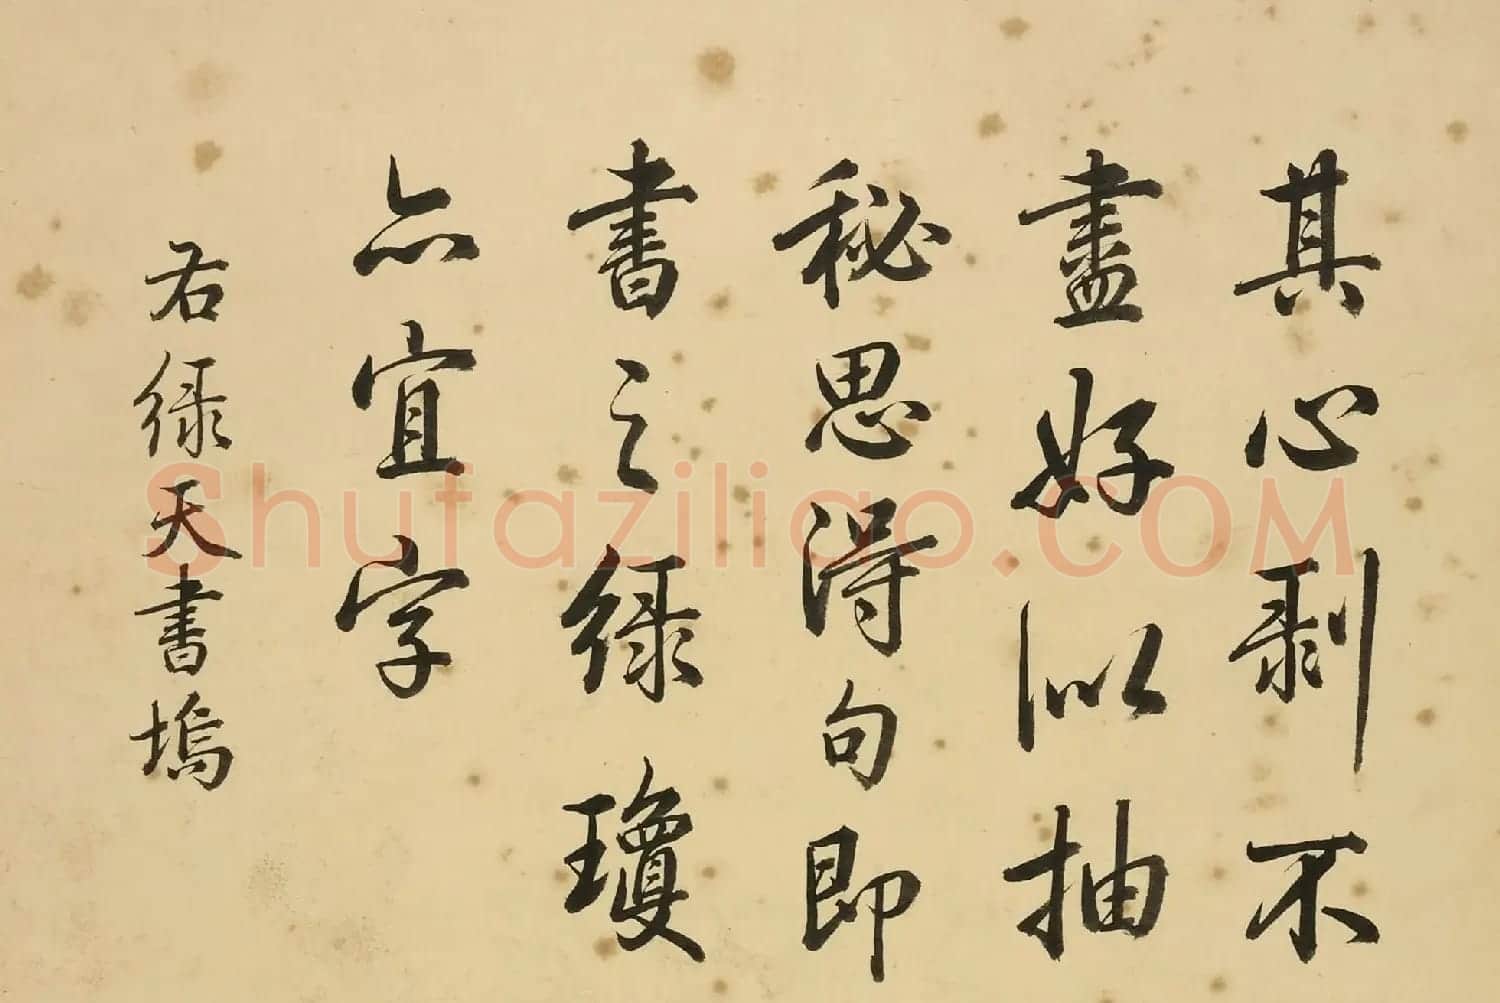 其心剥不
盡好似抽
秘思得句即
書之緑瓊
亦宜字
右緑天書塢
Shufaziliao.COM